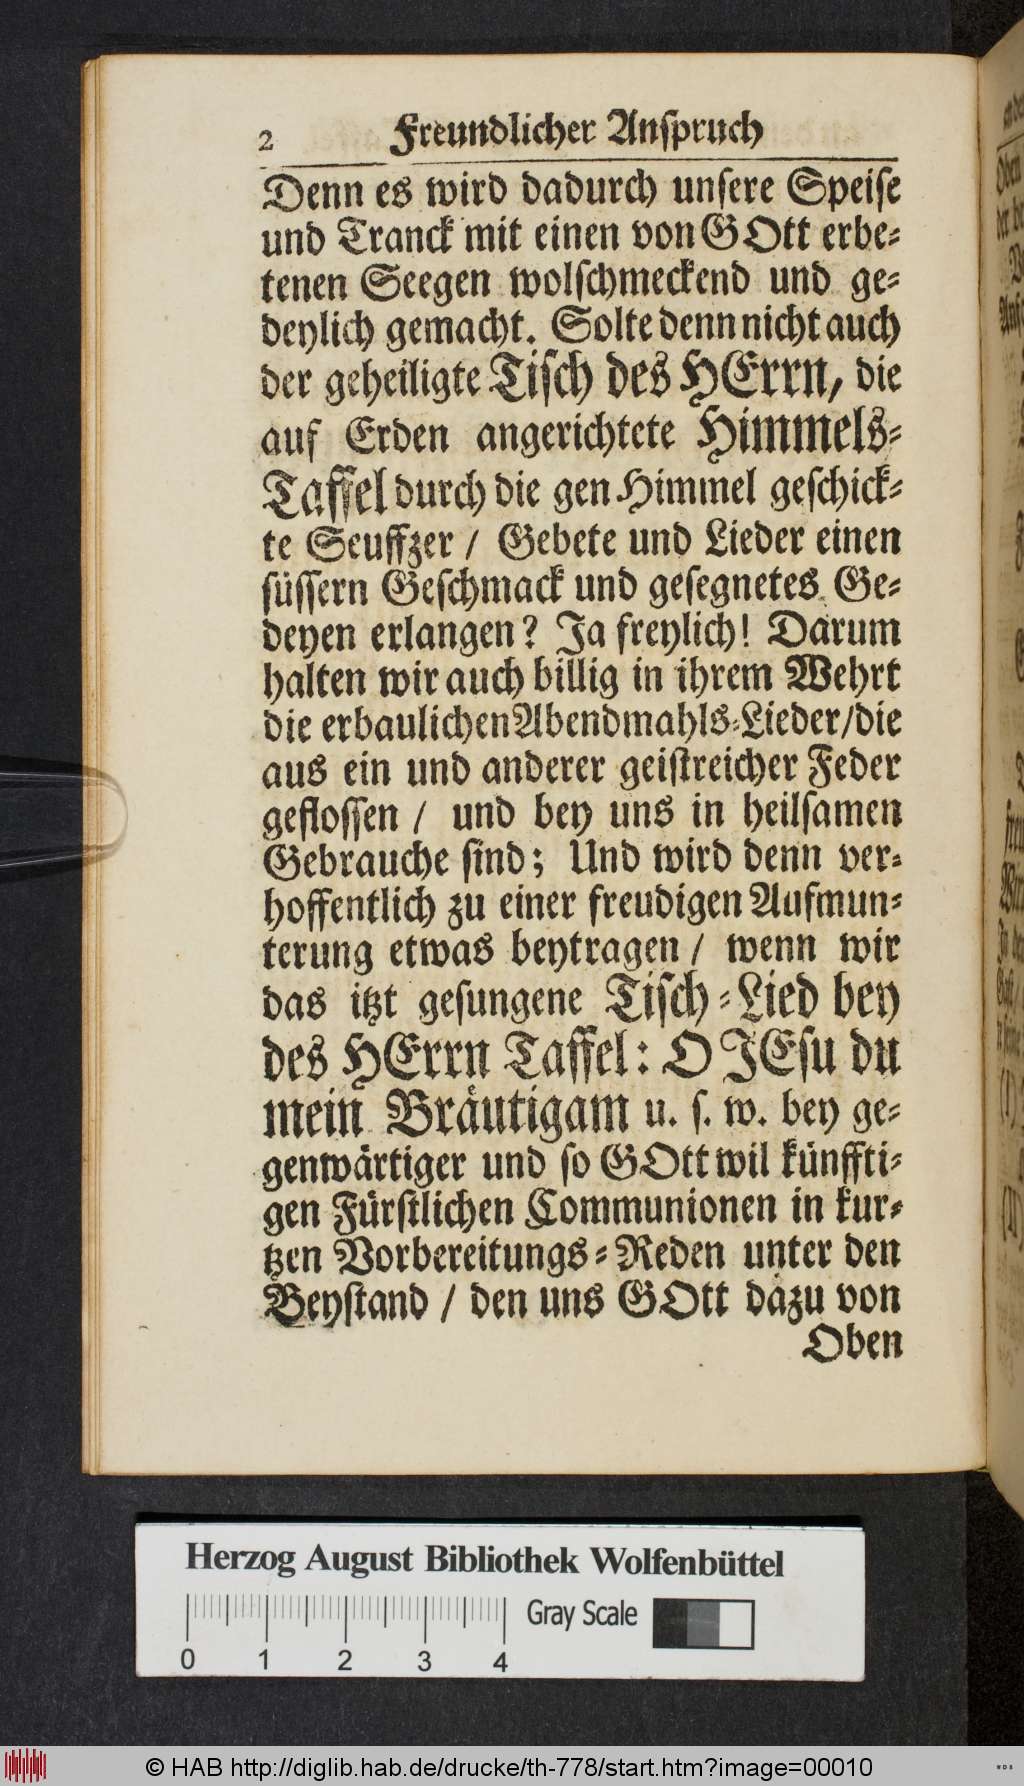 2 Freundlicher Anspruch
Denn es wird dadurch unsere Speise
und Tranck mit einen von GOtt erbe-
tenen Seegen wolschmeckend und ge-
deylich gemacht. Solte denn nicht auch
der geheiligte Tisch des HErrn, die
auf Erden angerichtete Himmels-
Taffel durch die gen Himmel geschick-
te Seuffzer / Gebete und Lieder einen
süssern Geschmack und gesegnetes Ge-
deyen erlangen? Ja freylich! Darum
halten wir auch billig in ihrem Wehrt
die erbaulichen Abendmahls-Lieder/die
aus ein und anderer geistreicher Feder
geflossen / und bey uns in heilsamen
Gebrauche sind; Und wird denn ver-
hoffentlich zu einer freudigen Aufmun-
terung etwas beytragen / wenn wir
das itzt gesungene Tisch-Lied bey
des HErrn Taffel: O JEsu du
mein Bräutigam u. s. w. bey ge-
genwärtiger und so GOtt wil künffti-
gen Fürstlichen Communionen in kur-
tzen Vorbereitungs-Reden unter den
Beystand / den uns GOtt dazu von
Oben
Herzog August Bibliothek Wolfenbüttel
Gray Scale
0 1 2 3 4
© HAB http://diglib.hab.de/drucke/th-778/start.htm?image=00010